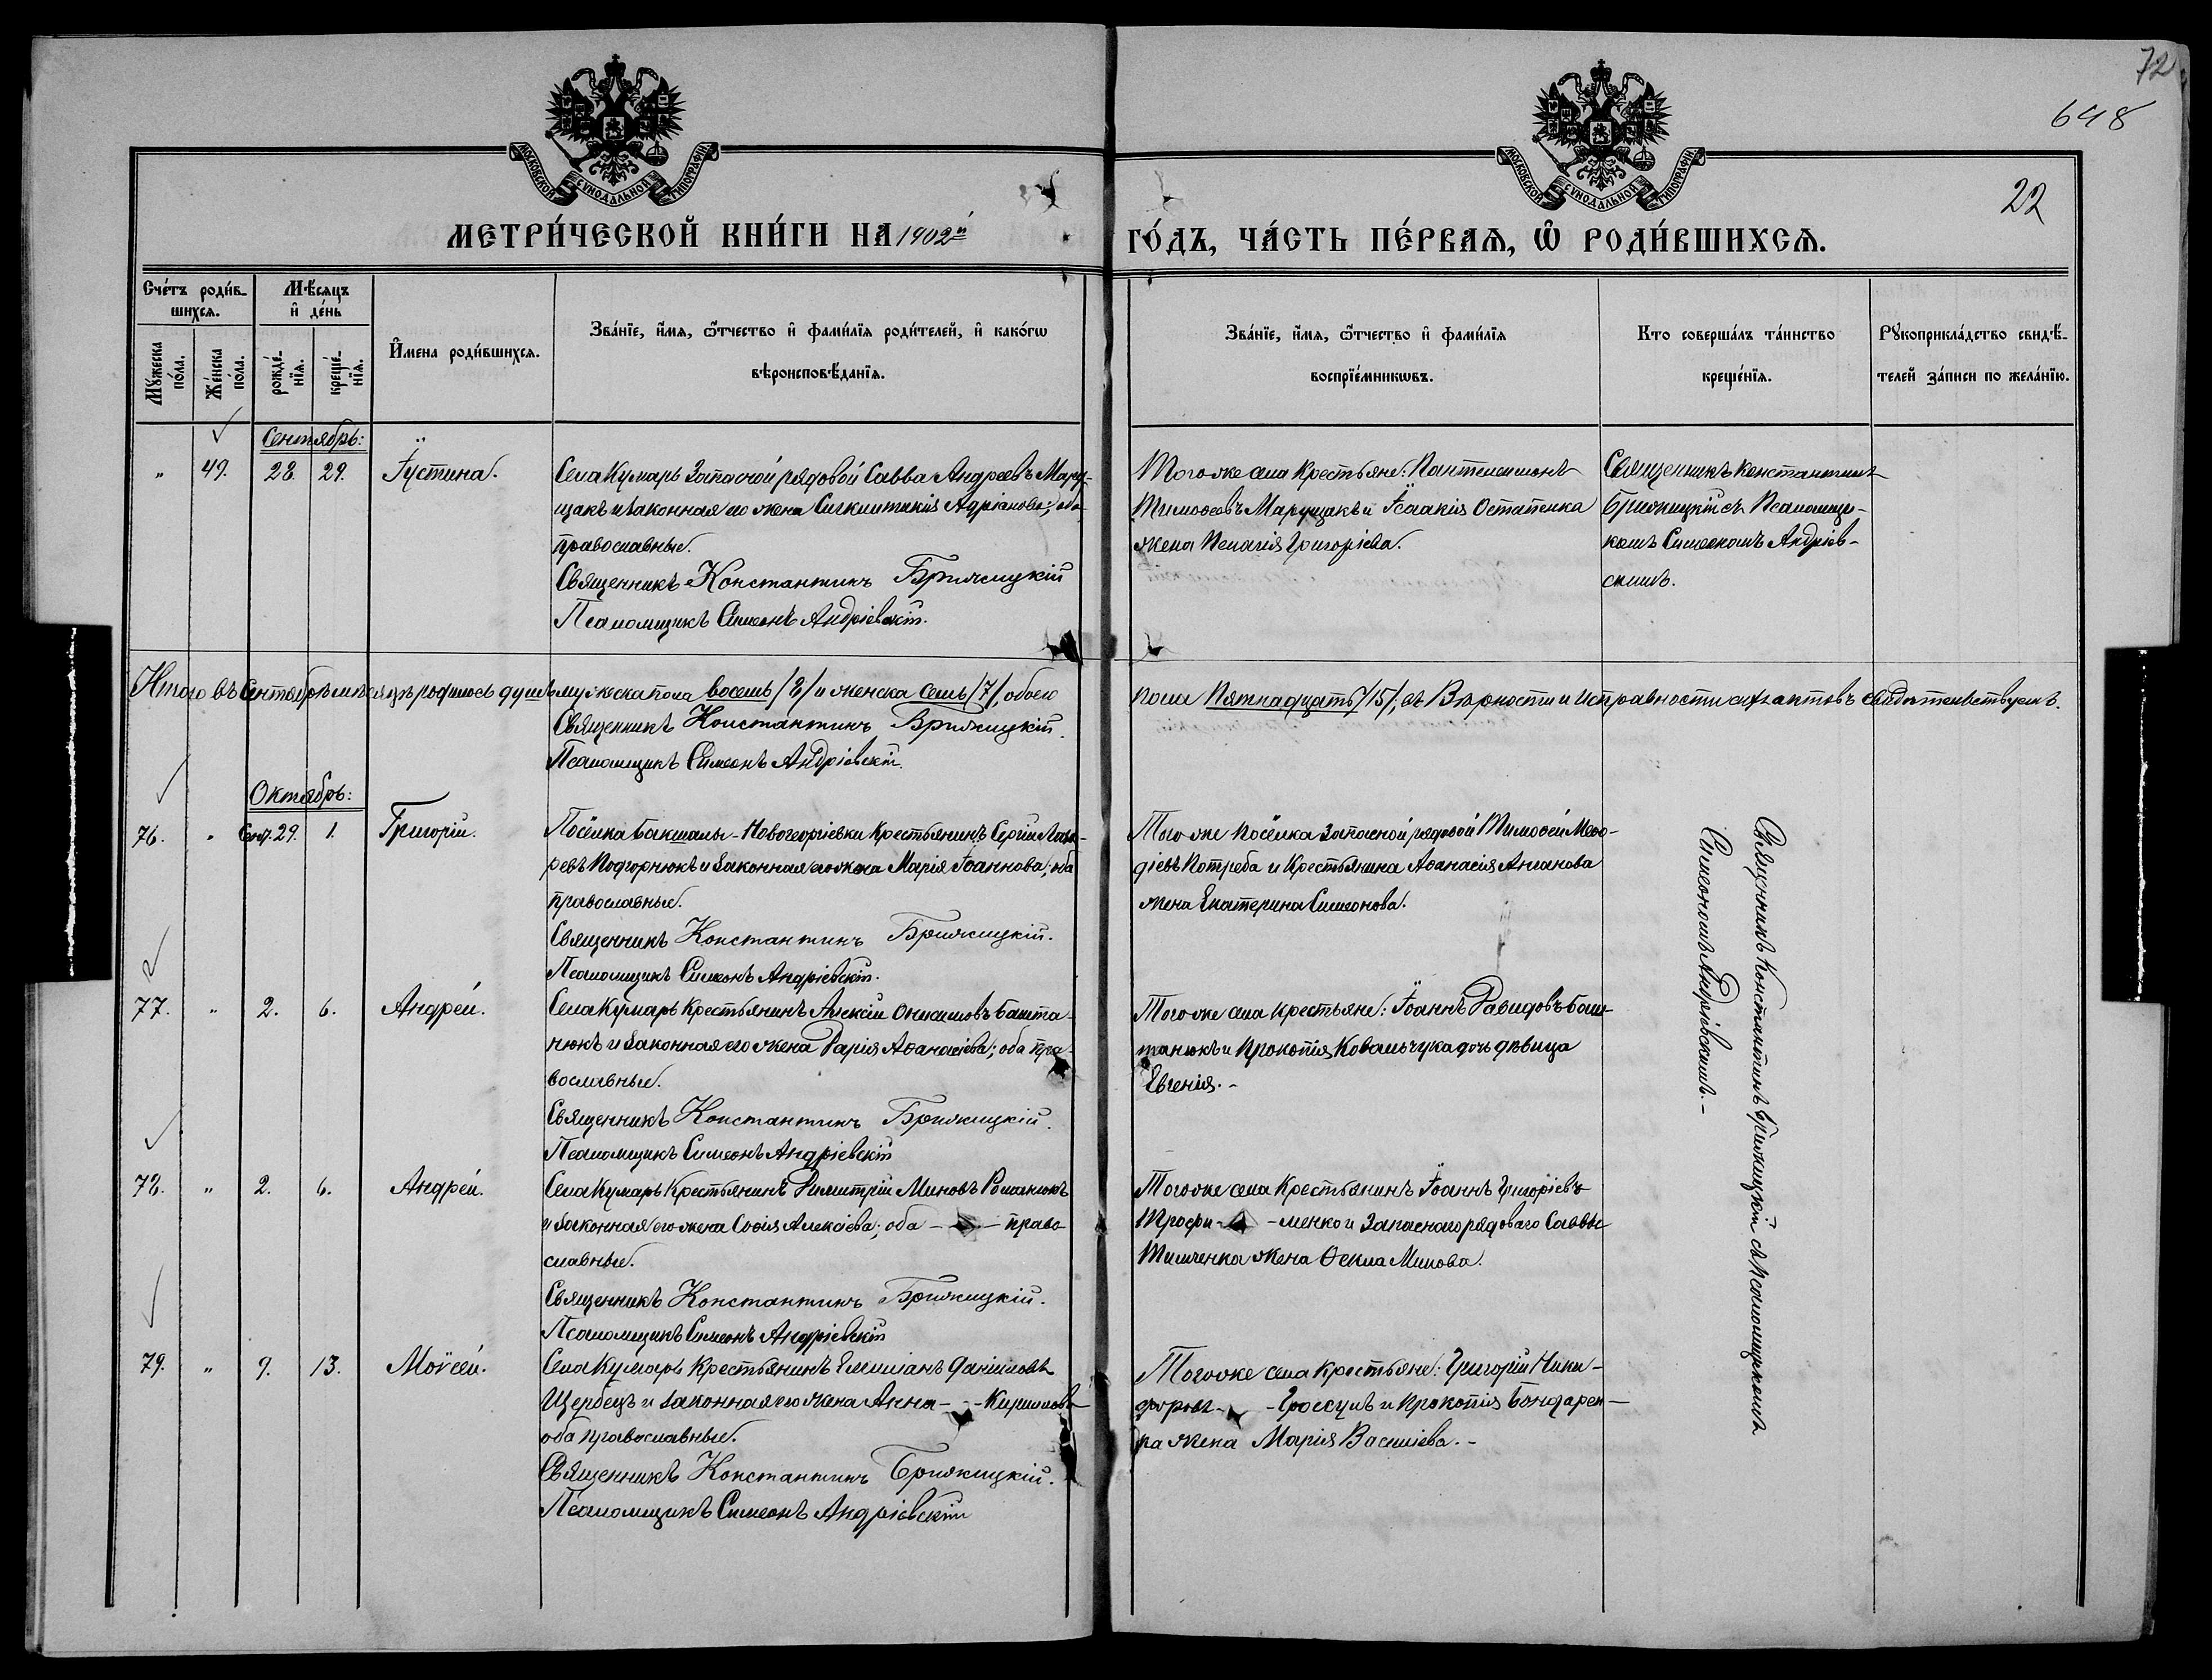 72
648
22
МОСКОВСКОЙ СѴНОДАЛЬНОЙ ТИПОГРАФІИ
МОСКОВСКОЙ СѴНОДАЛЬНОЙ ТИПОГРАФІИ
МЕТРИ́ЧЕСКОЙ КНИ́ГИ НА 1902й ГО́ДЪ, ЧА́СТЬ ПЕ́РВАѦ, Ѡ҆ РОДИ́ВШИХСѦ.
Сче́тъ роди́в-
шихсѧ.
Мѣ́сѧцъ
и҆ де́нь
Мꙋ́жеска по́ла.
Же́нска по́ла.
рожде́-нїѧ.
креще́-нїѧ.
И҆мена роди́вшихсѧ.
Зва́нїе, и҆́мѧ, ѻ҆́тчество и҆ фами́лїѧ роди́телей, и҆ како́гѡ
вѣроисповѣ́данїѧ.
Зва́нїе, и҆́мѧ, ѻ҆́тчество и҆ фами́лїѧ
воспрїе́мникѡвъ.
Кто соверша́лъ та́инство
креще́нїѧ.
Рꙋкоприкла́дство свидѣ́-
телей за́писи по жела́нїю.
Сентябрь:
" 49. 28. 29. Іустина.
Села Кумарь Запасной рядовой Савва Андреевъ Мару-
щакъ и законная его жена Сигклитикія Адріанова; оба
православные.
Священникъ Константинъ Брижицкій
Псаломщикъ Симеонъ Андріевскій.
Того же села Крестьяне: Пантелеимонъ
Тимоѳеевъ Марущакъ и Ісаакія Остапенка
жена Пелагія Григоріева.
Священникъ Константинъ
Брижицкій съ Псаломщи-
комъ Симеономъ Андріев-
скимъ.
Итого въ Сентябрѣ мѣсяцѣ родилось душъ мужеска пола восемь /8/ и женска семь /7/, обоего
пола Пятнадцать /15/, въ Вѣрности и Исправности сихъ актовъ свидѣтельствуемъ.
Священникъ Константинъ Брижицкій.
Псаломщикъ Симеонъ Андріевскій.
Октябрь:
76. " Сент. 29. 1. Григорій.
Посёлка Бакшалы-Новогеоргіевки Крестьянинъ Сергій Лаза-
ревъ Подгорнюкъ и законная его жена Марія Іоаннова; оба
православные.
Священникъ Константинъ Брижицкій.
Псаломщикъ Симеонъ Андріевскій.
Того же посёлка Запасной рядовой Тимоѳей Меѳо-
діевъ Потреба и Крестьянина Аѳанасія
жена Екатерина Симеонова.
77. " 2. 6. Андрей.
Села Кумарь Крестьянинъ Алексій Онисимовъ Башта-
нюкъ и законная его жена Дарія Аѳанасіева; оба пра-
вославные.
Священникъ Константинъ Брижицкій.
Псаломщикъ Симеонъ Андріевскій
Того же села крестьяне: Іоаннъ Давидовъ Баш-
танюкъ и Прокопія Ковальчука дочь дѣвица
Евгенія.-
78. " 2. 6. Андрей.
Села Кумарь Крестьянинъ Димитрій Миновъ Романюкъ
и законная его жена Софія Алексіева; оба - - право-
славные.
Священникъ Константинъ Брижицкій.
Псаломщикъ Симеонъ Андріевскій
Того же села Крестьянинъ Іоаннъ Григоріевъ
Трофи- -менко и Запаснаго рядоваго Саввы
Тимченка жена Ѳекла Минова.
79. " 9. 13. Моѵсей.
Села Кумарь Крестьянинъ Емиліанъ Даніиловъ
Щербецъ и законная его жена Анна - - Кириллова
оба православные.
Священникъ Константинъ Брижицкій.
Псаломщикъ Симеонъ Андріевскій
Того же села Крестьяне: Григорій Ники-
форовъ - - Гроссулъ и Прокопія Бондарен-
ра жена Марія Василіева.-
Священникъ Константинъ Брижицкій съ Псаломщикомъ
Симеономъ Андріевскимъ.-